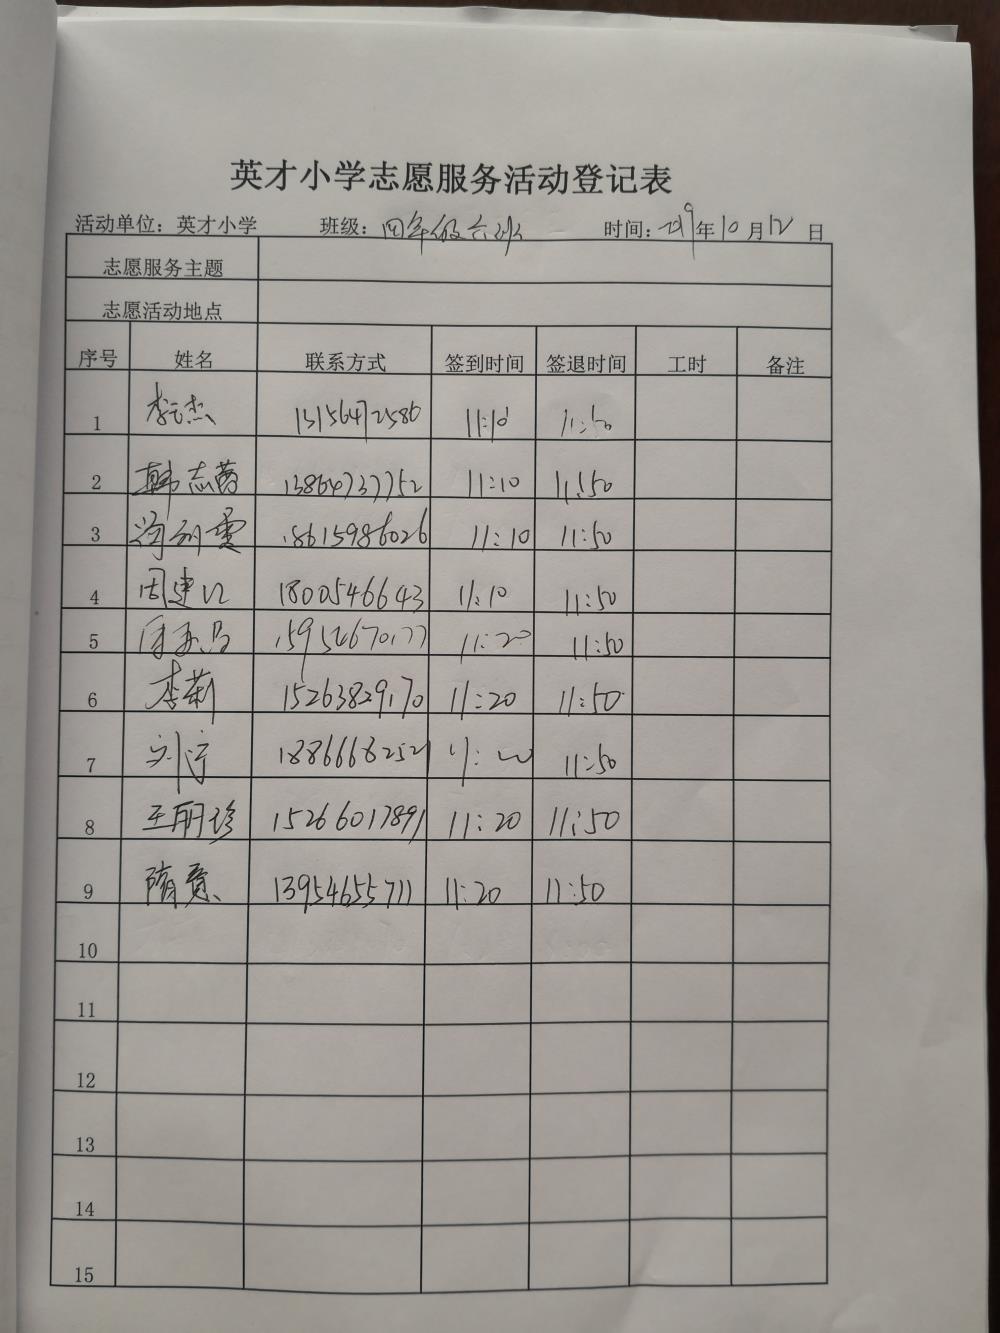 英才小学志愿服务活动登记表
活动单位：英才小学 班级：四年级六班 时间：2019年10月12日
志愿服务主题
志愿活动地点
序号 姓名 联系方式 签到时间 签退时间 工时 备注
1 李云杰 13156472586 11:10 11:50
2 韩志茜 13864737752 11:10 11:50
3 18615986026 11:10 11:50
4 周建江 18005466643 11:10 11:50
5 15954670177 11:20 11:50
6 李莉 15263829170 11:20 11:50
7 刘宁 18866682521 11:20 11:50
8 王丽珍 15266017891 11:20 11:50
9 隋意 13954655711 11:20 11:50
10
11
12
13
14
15